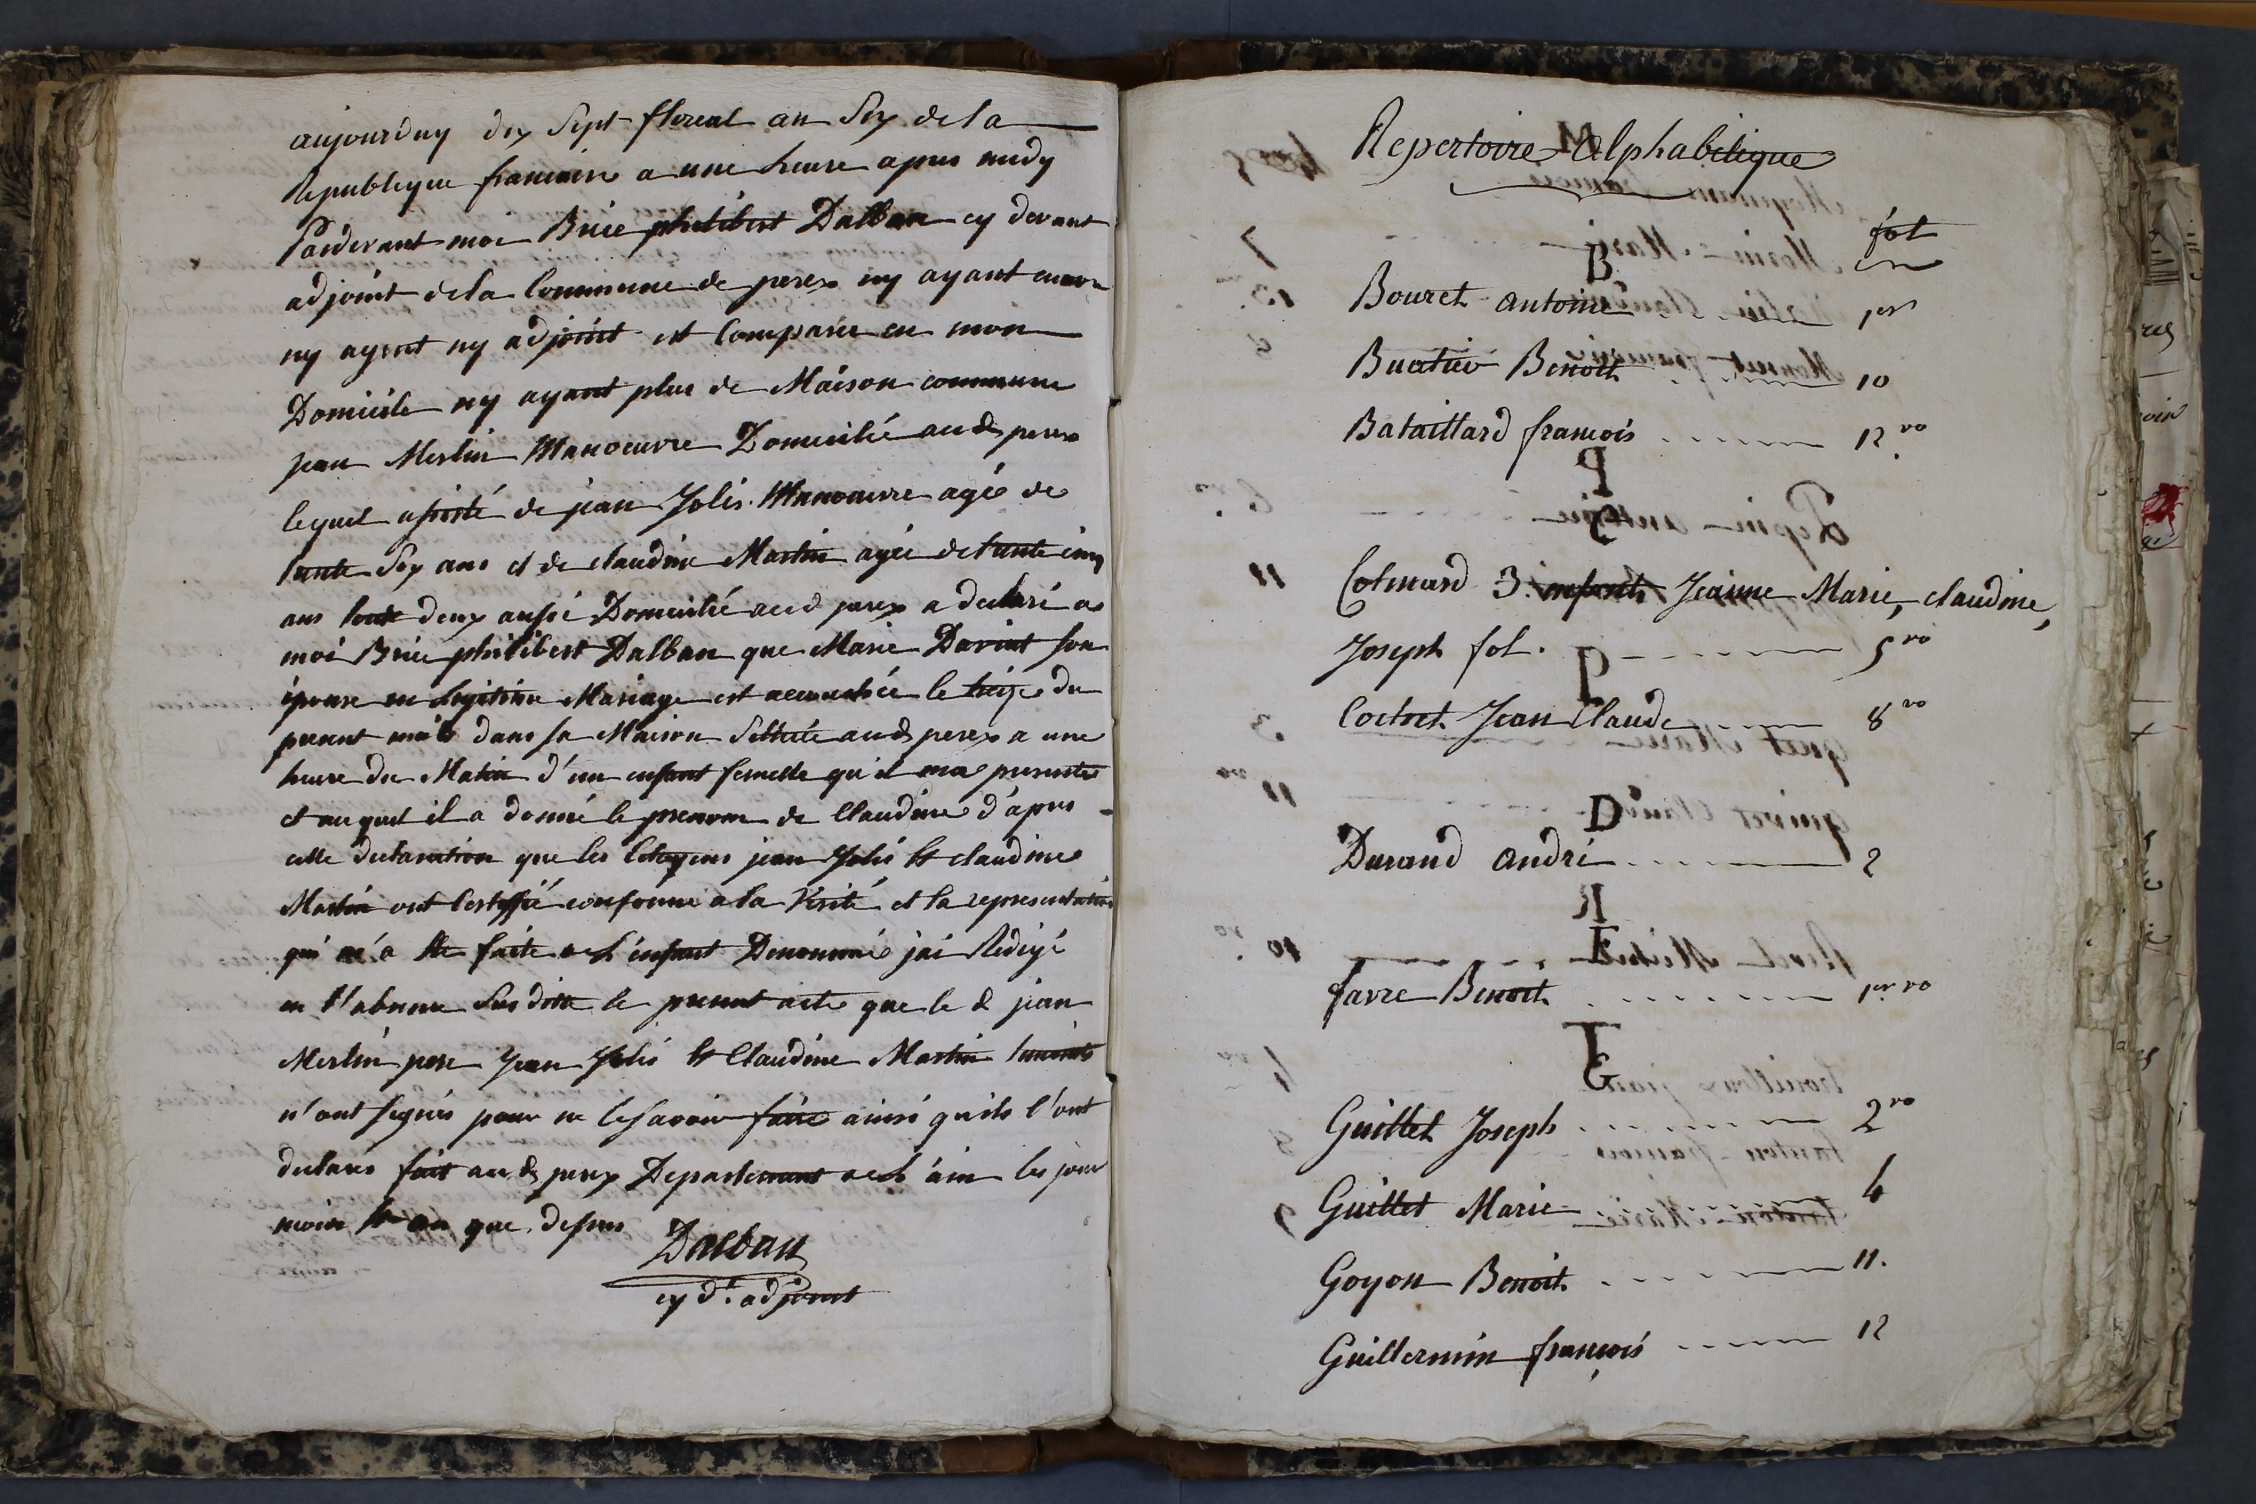 aujourduy dix Sept floreal an Six de la
Republique francoise a une heure apres midy
Pardevant moi Brice philibert Dalban cy devant
adjoint de la Commune de perex ny ayant encore
ny agent ny adjoint est Comparu en mon
Domicile ny ayant plus de Maison commune
jean Merlin Manoeuvre Domicilié aud perex
lequel assisté de jean Jolis Manoeuvre agé de
trente Six ans et de claudine Martin agée de trente cinq
ans tout deux aussi Domicilié aud perex a declaré a
moi Brice philibert Dalban que Marie Darint son
épouse en legitime Mariage est accouchée le treize du
present mois dans sa Maison Sittuée aud perex a une
heure du Matin d'un enfant femelle qu'il ma presenté
et auquel il a donné le prenom de Claudine d'apres
cette declaration que les Citoyens jean Jolis et claudine
Martin ont Certiffié conforme a la Vérité et la representation
qui m'a été faite de l'enfant Denommé jai Redigé
en Vabsence Susditte le present acte que le d jean
Merlin pere Jean Jolis et Claudine Martin temoins
n'ont signés pour ne le Savoir faire ainsi qu'ils l'ont
declaré fait aud perex Departement de l'ain les jour
mois et an que dessus
Dalban
cy dt. adjoint
Repertoire Alphabetique
fol
B
Bouret antoine 1er
Buatier Benoit 10
Bataillard francois 12 vo
C
Colmard 3. enfants Jeanne Marie, claudine,
Joseph fol. 5 vo
Cochet Jean Claude 8 vo
D
Durand andré 2
F
favre Benoit 1er vo
G
Guillet Joseph 2 vo
Guillet Marie 4
Goyon Benoit 11.
Guillermin françois 12